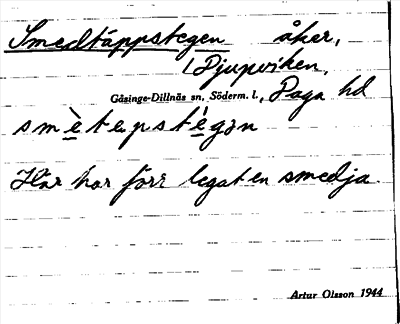 Smedtäppstegen åker,
Djupviken,
Gåsinge-Dillnäs sn, Söderm. l., Daga hd
smètepstégən
Här har förr legat en smedja.
Artur Olsson 1944